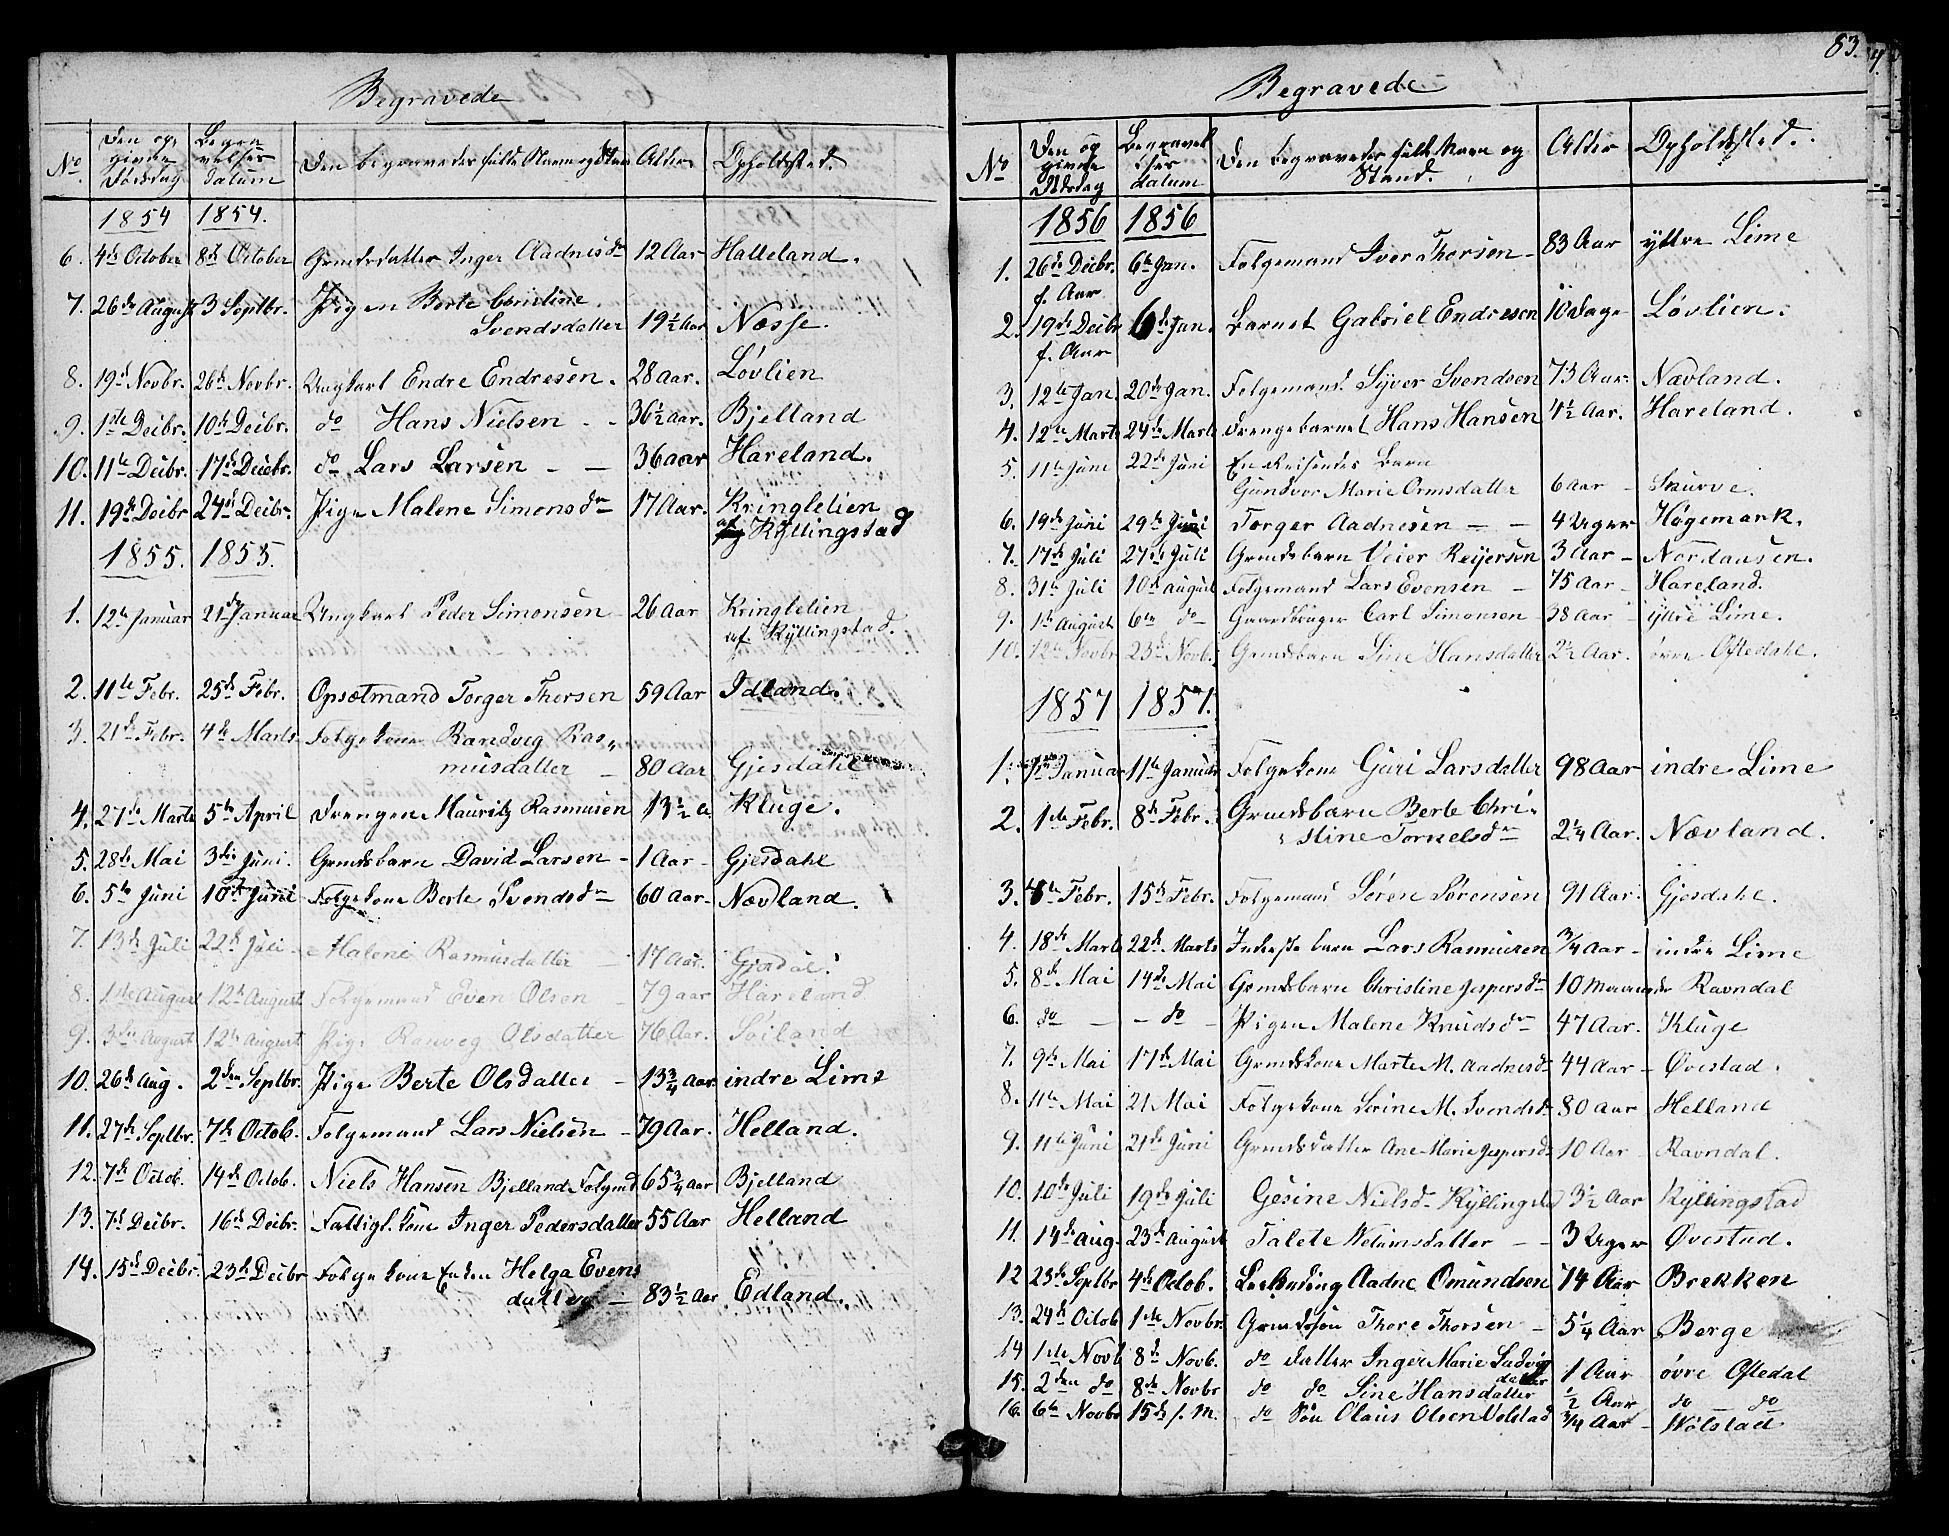 Begravede
No. Den opgivne Dødsdag Begravelses datum Den begravedes fulde Navn og Stand Alder Opholdsted.
1854 1854.
6. 4de October 8de October Gmdsdatter Inger Aadnesdr 12 Aar Halleland.
7. 26de August 3 Septbr. Pigen Berte Christine
Svendsdatter 19½ Aar Næsse.
8. 19de Novbr. 26de Novbr. Ungkarl Endre Endresen. 28 Aar. Løvlien
9. 1ste Decbr. 10de Decbr. do Hans Nielsen 36½ Aar. Bjelland
10. 11te Decbr. 17de Decebr. do Lars Larsen 36 aar Håreland.
11. 19de Decbr 24de Decbr. Pige Malene Simonsdr 17 Aar. Kringlelien
af Kÿllingstad
1855. 1855.
1. 12te Januar 21de Januar Ungkarl Peder Simonsen 26 Aar Kringlelien
af Kÿllingstad.
2. 11te Febr. 25de Febr. Opsætmand Torger Thorsen 59 Aar Idland.
3. 21de Febr. 4de Marts Folgekone Randveg Ras„
musdatter 80 Aar Gjesdahl
4. 27de Marts 5te April Drengen Mauritz Rasmusen 13½ a Kluge.
5. 28de Mai 3die Juni. Gmdsbarn David Larsen 1 Aar Gjesdahl
6. 5te Juni 10de Juni Folgekone Berte Svendsdr 60 Aar Nævland.
7. 13de Juli 22de Juli Malene Rasmusdatter 17 Aar. Gjesdal.
8. 1ste August 12te August Folgemand Even Olsen 79 aar Håreland
9. 3die August 12te August Pige Ranveg Olsdatter 76 Aar. Søiland
10. 26de Aug. 2den Septbr. Pige Berte Olsdatter 13¾ Aar indre Lime
11. 27de Septbr. 7de Octob. Folgemand Lars Nielsen 79 Aar. Helland.
12. 7de Octob. 14de Octob. Niels Hansen Bjelland Folgmd 65¾ aar Bjelland
13. 7de Decbr. 16de Decbr. Fattigl. kone Inger Pedersdatter 55 Aar Helland
14. 15de Decbr. 23de Decbr Folgekone Enken Helga Evens
datter 83½ Aar Edland.
83.
Begravede
No Den opgivne Dødsdag Begravelses datum Den begravedes fulde Navn og Stand. Alder Opholdsted.
1856 1856
1. 26de Decbr. 6te Jan. Folgemand Iver Thorsen 83 Aar ÿttre Lime
f. Aar
2. 19de Decbr 6te Jan. Barnet Gabriel Endresen 10 Dage Løvlien.
f. Aar
3. 12te Jan. 20de Jan. Folgemand Syver Svendsen 73 Aar. Nævland.
4. 12te Marts 24de Marts Drengebarnet Hans Hansen 4½ Aar. Håreland.
5. 11te Juni 22de Juni En Reisendes Barn
Gundvor Marie Ormsdatter 6 aar Skurve.
6. 19de Juni 29de Juni Torger Aadnesen 4 Uger Høgemark.
7. 17de Juli 27de Juli Gmdsbarn Veier Reijersen 3 Aar Nordaasen.
8. 31te Juli 10de august Folgemand Lars Evensen 75 Aar Håreland.
9. 1ste August 6te do Gaardbruger Carl Simonsen 38 Aar ÿttre Lime.
10. 12te Novbr 23de Novb. Gmdsbarn Sine Hansdatter 2½ Aar. øvre Oftedahl.
1857 1857.
1. Januar 11te Januar Folgekone Guri Larsdatter 98 Aar indre Lime
2. 1ste Febr. 8de Febr. Gmdsbarn Berte Chri
stine Tornelsdr 2¼ Aar. Nævland.
3. Febr. 15de Febr. Folgemand Søren Sørensen 91 Aar. Gjesdahl.
4. 18de Marts 22de Marts Inderste barn Lars Rasmusen ¾ Aar indre Lime
5. 8de Mai 14de Mai Gmdsbarn Christine Jespersdr 10 Maaneder Ravndal
6. do do Pigen Malene Knudsdr 47 Aar. Kluge
7. 9de Mai 17de Mai Gmdskone Marte M. Aadnesdr 44 Aar Øvestad.
8. 11te Mai 21 Mai Folgekone Serine M. Svendsdr 80 Aar Helland
9. 11te Juni 21de Juni Gmdsdatter Ane Marie Jespersdr 10 Aar Ravndal.
10. 10de Juli 19de Juli Gesine Nielsdr Kÿllingstad 3½ Aar Kÿllingstad
11. 14de aug. 23de august Talete Wilumsdatter 3 Uger Øvestad.
12 23de Septbr 4de Octob. Aadne Omundsen 74 Aar Brekken
13. 24de Octob 1ste Novbr. Gmdssøn Thore Thorsen 5¼ Aar Berge
14 1ste Novb 8de Novb. do datter Inger Marie Ludvig
datter 1 Aar øvre Oftedal
15. 2den do 8de Novbr do do Sine Hansdatter ½ Aar do do
16. 6te Novbr 15de f. M. do Søn Olaus Olsen Volstad ¾ Aar Wølstad